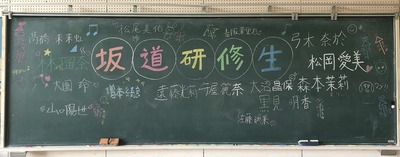 松尾美佑
高橋未来虹
弓木奈於
林瑠奈
坂道研修生
松岡愛美
大園玲
増本綺良
遠藤光莉
守屋麗奈
大沼晶保
森本茉莉
山口陽世
黒見明香
佐藤璃果